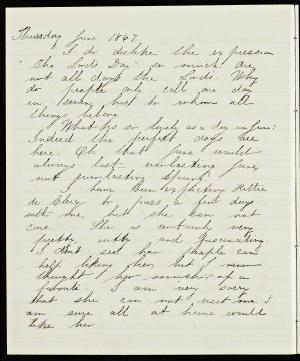 Thursday June 1867.
I do dislike the expression
"the Lord's Day" so much. Are
not all days the Lord's. Why
do people only call one day
in seven, His to whom all
things belong.
"What is so lovely as a day in June."
Indeed the perfect days are
here. Oh that June would
always last, everlasting June,
not everlasting Spring.
I have been expecting Hattie
de Clercq to pass a few days
with me, but she can not
come. She is certainly very
pretty, witty and fascinating.
I don't see how people can
help liking her, but I never
thought her much of a
favorite. I am very sorry
that she can not visit me. I
am sure all at home would
like her